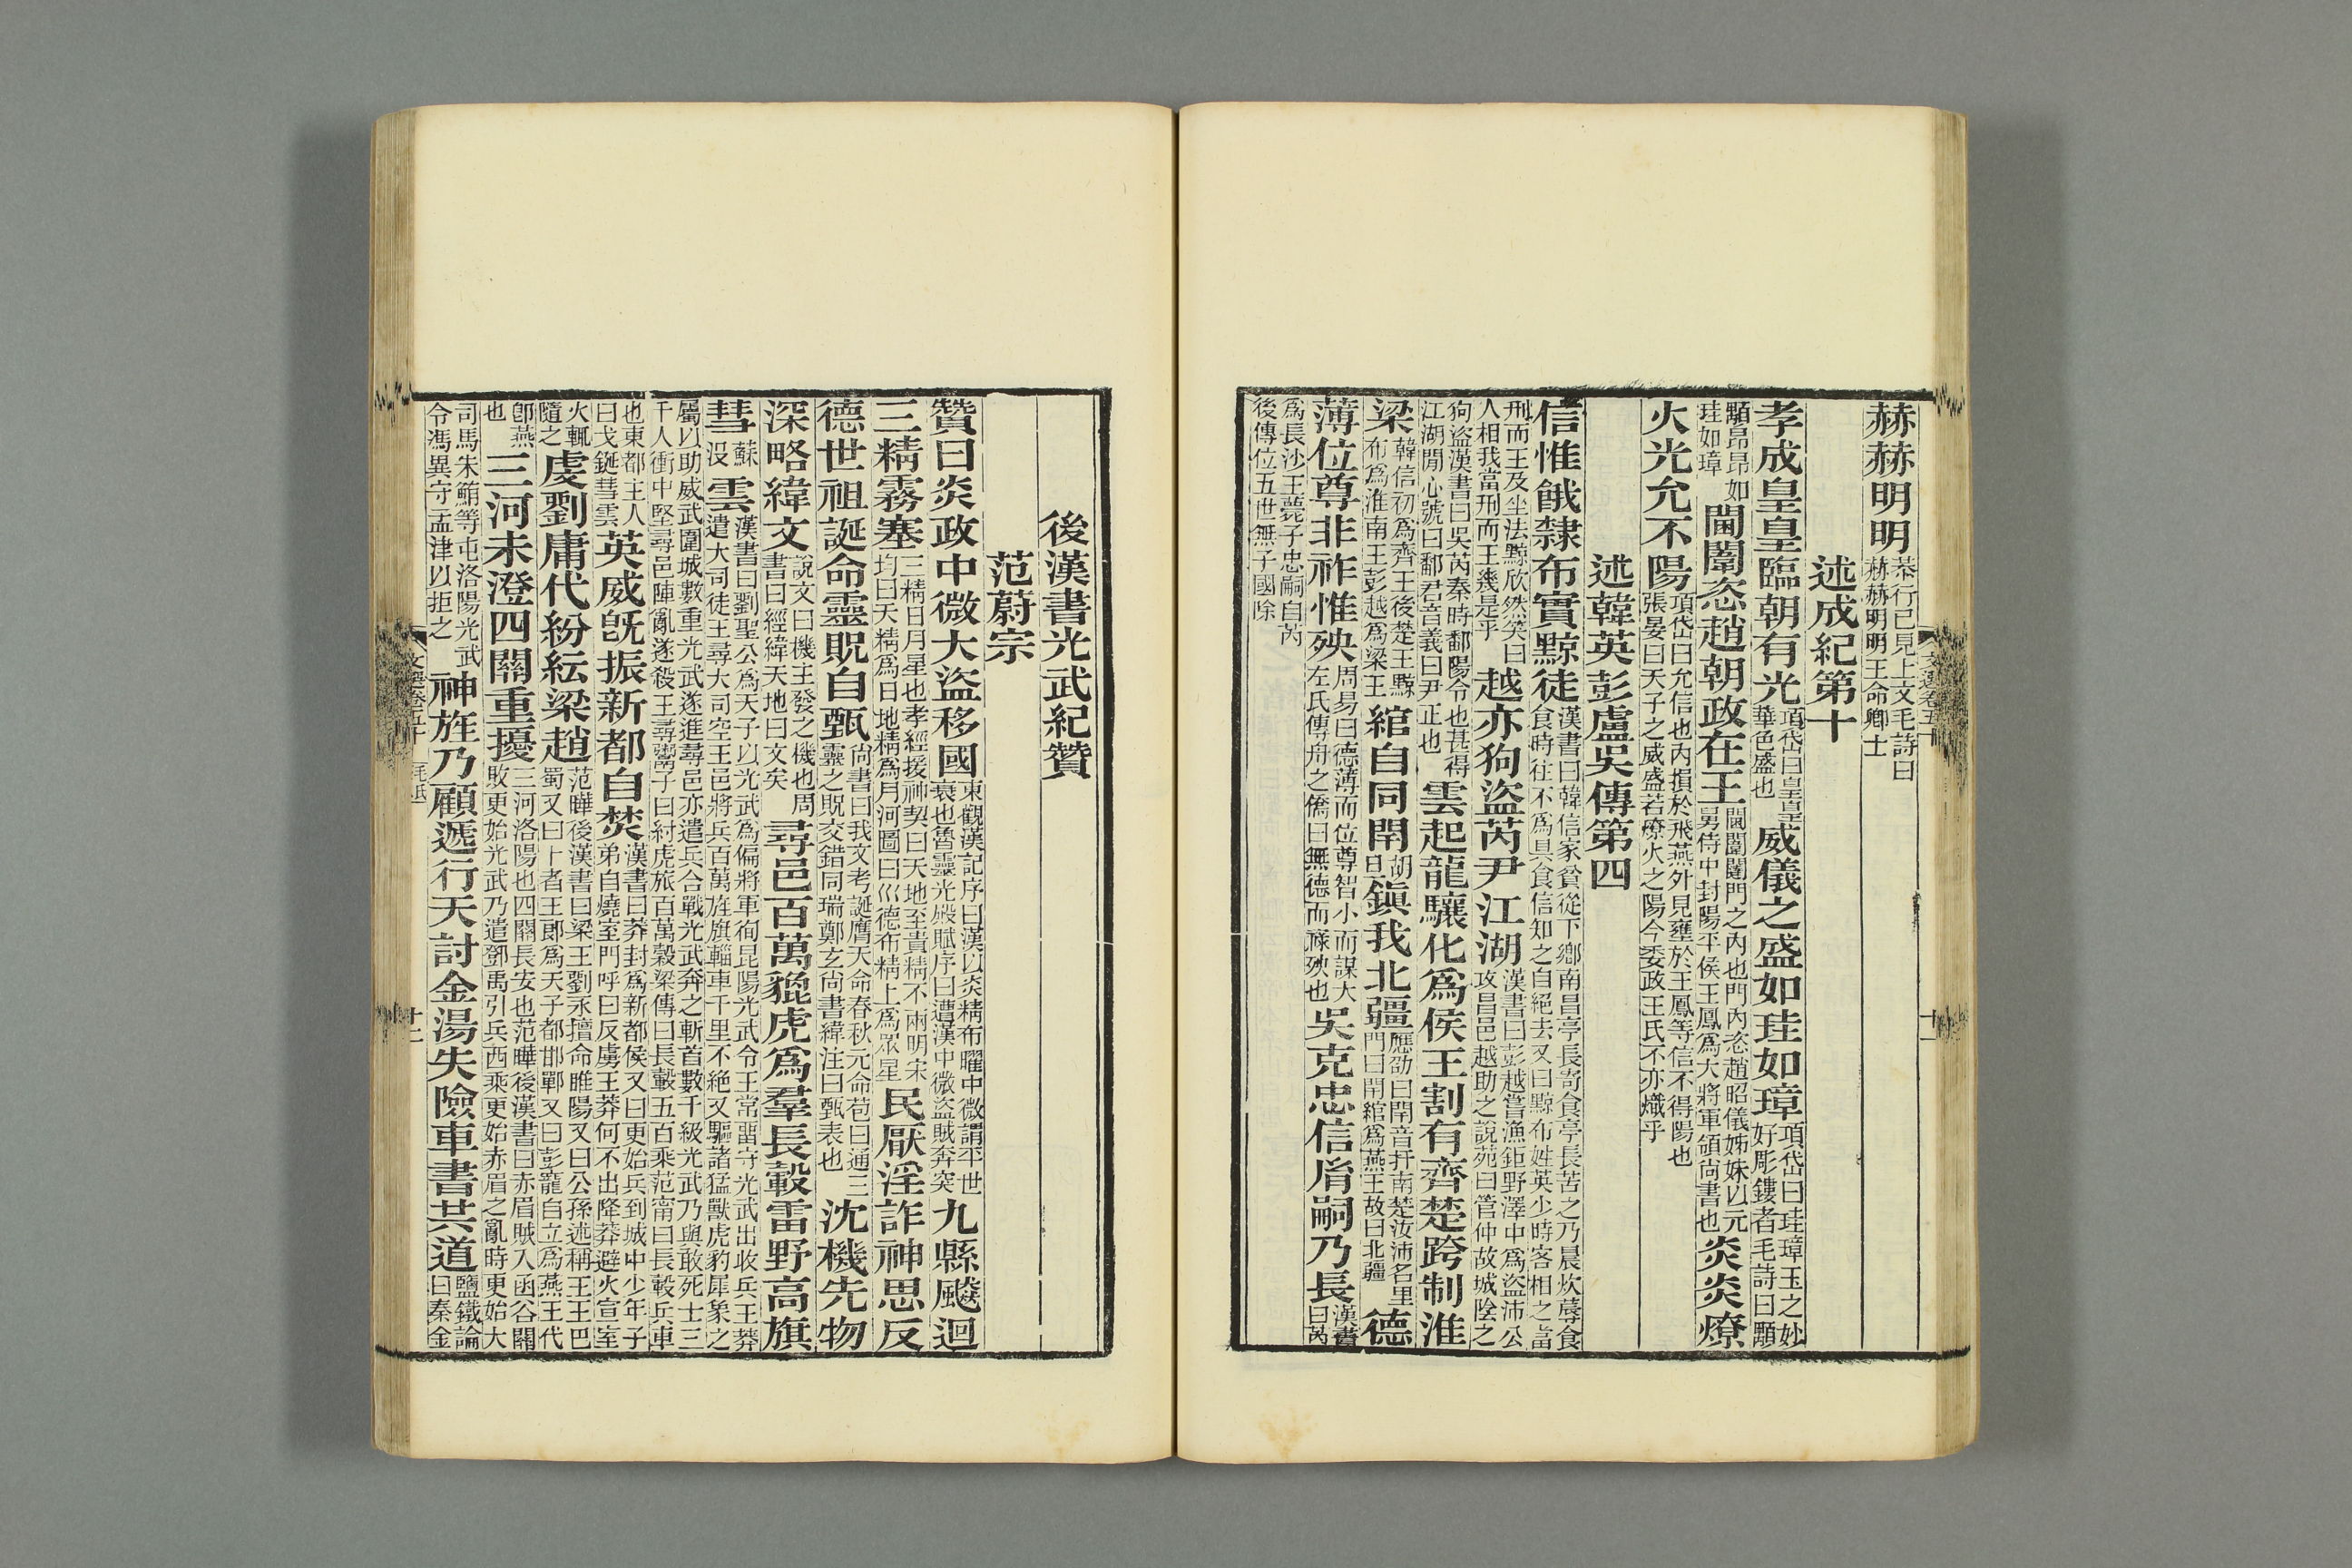 赫赫明明恭行已見上文毛詩曰赫赫明明王命卿士
述成紀第十
孝成皇皇臨朝有光項岱曰皇皇華色盛也威儀之盛如珪如璋項岱曰珪璋玉之妙好彫鏤者毛詩曰顒
顒昂昂如珪如璋閫闈恣趙朝政在王閫闈闥門之內也門內恣趙昭儀姊妹以元舅侍中封陽平侯王鳳為大將軍領尚書也炎炎燎
火光允不陽項岱曰允信也內損於飛燕外見壅於王鳳等信不得陽也張晏曰天子之威盛若燎火之陽今委政王氏不亦熾乎
述韓英彭盧吳傳第四
信惟餓隸布實黥徒漢書曰韓信家貧從下鄉南昌亭長寄食亭長苦之乃晨炊蓐食食時往不為具食信知之自絕去又曰黥布姓英少時客相之當
刑而王及坐法黥欣然笑曰人相我當刑而王幾是乎越亦狗盜芮尹江湖漢書曰彭越嘗漁鉅野澤中為盜沛公攻昌邑越助之說苑曰管仲故城陰之
狗盜漢書曰吳芮秦時鄱陽令也甚得江湖閒心號曰鄱君音義曰尹正也雲起龍驤化為侯王割有齊楚跨制淮
梁韓信初為齊王後楚王黥布為淮南王彭越為梁王綰自同閈胡旦鎮我北疆應劭曰閈音扞南楚汝沛名里門曰閈綰為燕王故曰北疆德
薄位尊非祚惟殃周易曰德薄而位尊智小而謀大左氏傳舟之僑曰無德而祿殃也吳克忠信胤嗣乃長漢書曰芮
為長沙王薨子忠嗣自芮後傳位五世無子國除
後漢書光武紀贊
范蔚宗
贊曰炎政中微大盜移國東觀漢記序曰漢以炎精布曜中微謂平世衰也魯靈光殿賦序曰遭漢中微盜賊奔突九縣飈迴
三精霧塞三精日月星也孝經援神契曰天地至貴精不兩明宋均曰天精為日地精為月河圖曰巛德布精上為眾星民厭淫詐神思反
德世祖誕命靈貺自甄尚書曰我文考誕膺天命春秋元命苞曰通三靈之貺交錯同瑞鄭玄尚書緯注曰甄表也沈機先物
深略緯文說文曰機主發之機也周書曰經緯天地曰文矣尋邑百萬貔虎為羣長轂雷野高旗
彗蘇沒雲漢書曰劉聖公為天子以光武為偏將軍徇昆陽光武令王常畱守光武出收兵王莽遣大司徒王尋大司空王邑將兵百萬旌旗輜車千里不絕又驅諸猛獸虎豹犀象之
屬以助威武圍城數重光武遂進尋邑亦遣兵合戰光武奔之斬首數千級光武乃與敢死士三千人衝中堅尋邑陣亂遂殺王尋鬻子曰紂虎旅百萬穀梁傳曰長轂五百乘范甯曰長轂兵車
也東都主人曰戈鋋彗雲英威旣振新都自焚漢書曰莽封為新都侯又曰更始兵到城中少年子弟自燒室門呼曰反虜王莽何不出降莽避火宣室
火輒隨之虔劉庸代紛紜梁趙范曄後漢書曰梁王劉永擅命睢陽又曰公孫述稱王王巴蜀又曰卜者王郎為天子都邯鄲又曰彭寵自立為燕王代
卽燕也三河未澄四關重擾三河洛陽也四關長安也范曄後漢書曰赤眉賊入函谷關敗更始光武乃遣鄧禹引兵西乘更始赤眉之亂時更始大
司馬朱鮪等屯洛陽光武令馮異守孟津以拒之神旌乃顧遞行天討金湯失險車書共道鹽鐵論曰秦金
文選卷五十
十二